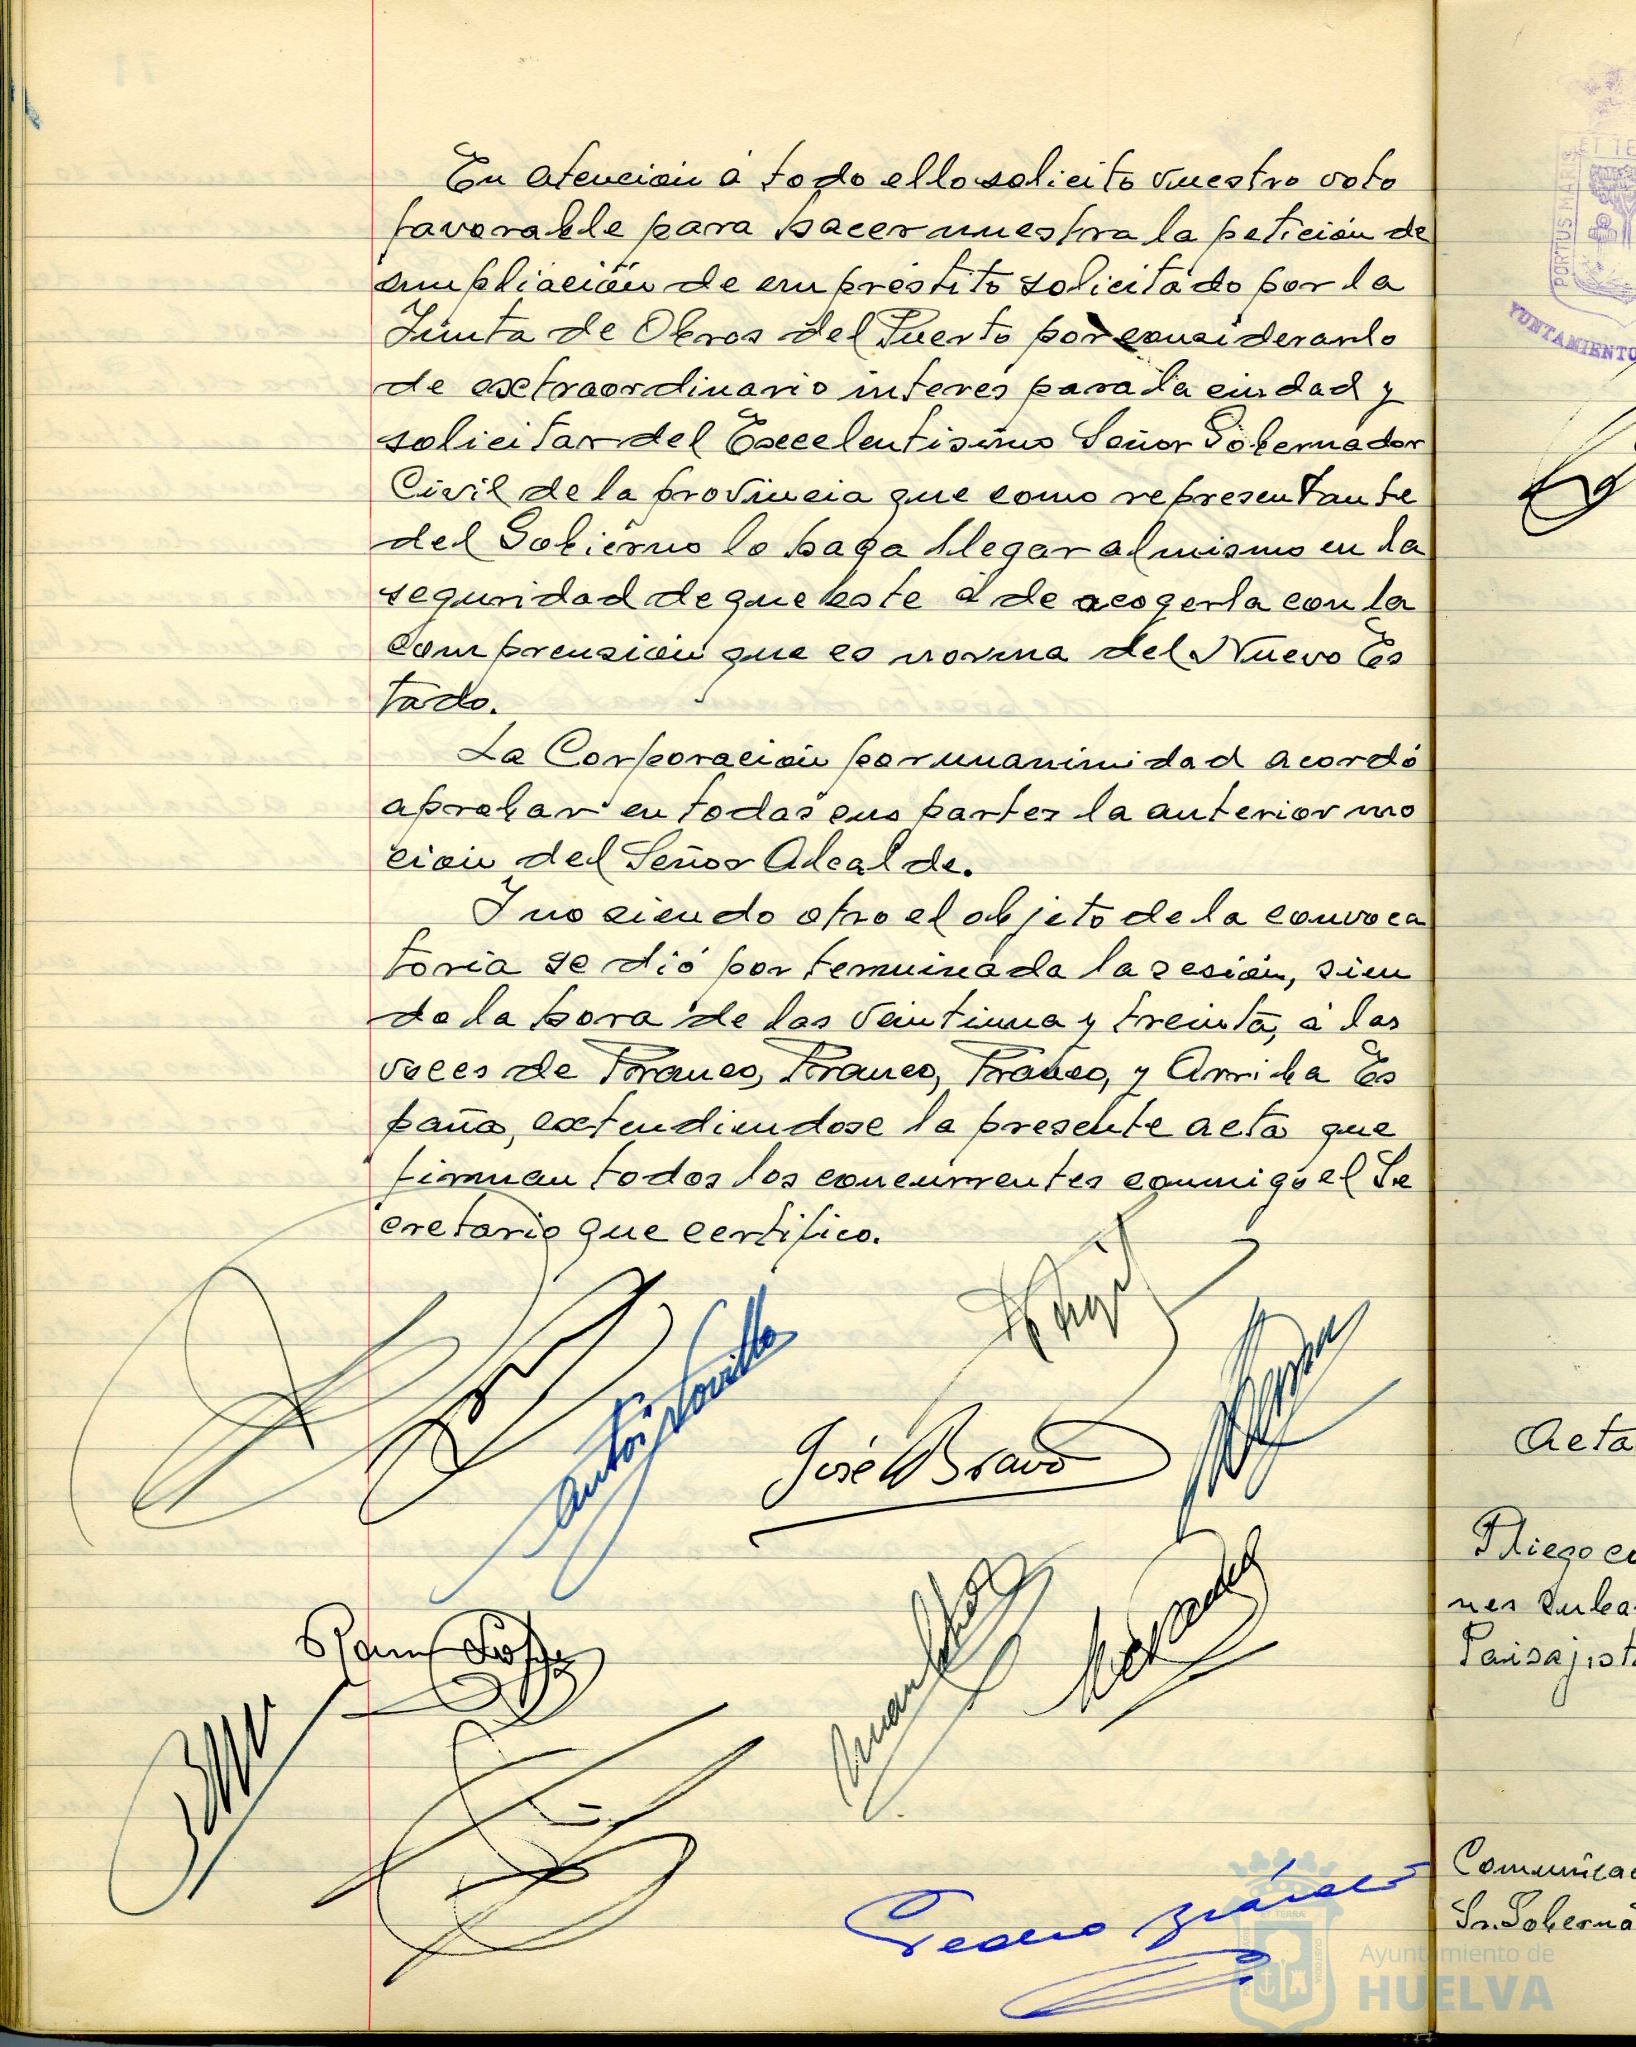 En atención á todo ello solicito vuestro voto
favorable para hacer nuestra la petición de
ampliación de empréstito solicitado por la
Junta de Obras del Puerto por considerarlo
de extraordinario interés para la ciudad y
solicitar del Excelentísimo Señor Gobernador
Civil de la provincia que como representante
del Gobierno lo haga llegar al mismo en la
seguridad de que este á de acogerla con la
comprensión que es norma del Nuevo Es
tado.
La Corporación por unanimidad acordó
aprobar en todas sus partes la anterior mo
ción del Señor Alcalde.
Y no siendo otro el objeto de la convoca
toria se dió por terminada la sesión, sien
do la hora de las veintiuna y treinta, á las
voces de Franco, Franco, Franco, y Arriba Es
paña, extendiendose la presente acta que
firman todos los concurrentes conmigo el Se
cretario que certifico.
José Bravo
Pedro
Ayuntamiento de
HUELVA
ET TE
PORTUS MARIS
YUNTAMIENTO
Acta
Pliego
nes
Paisajist
Comunicac
Sr. Goberna